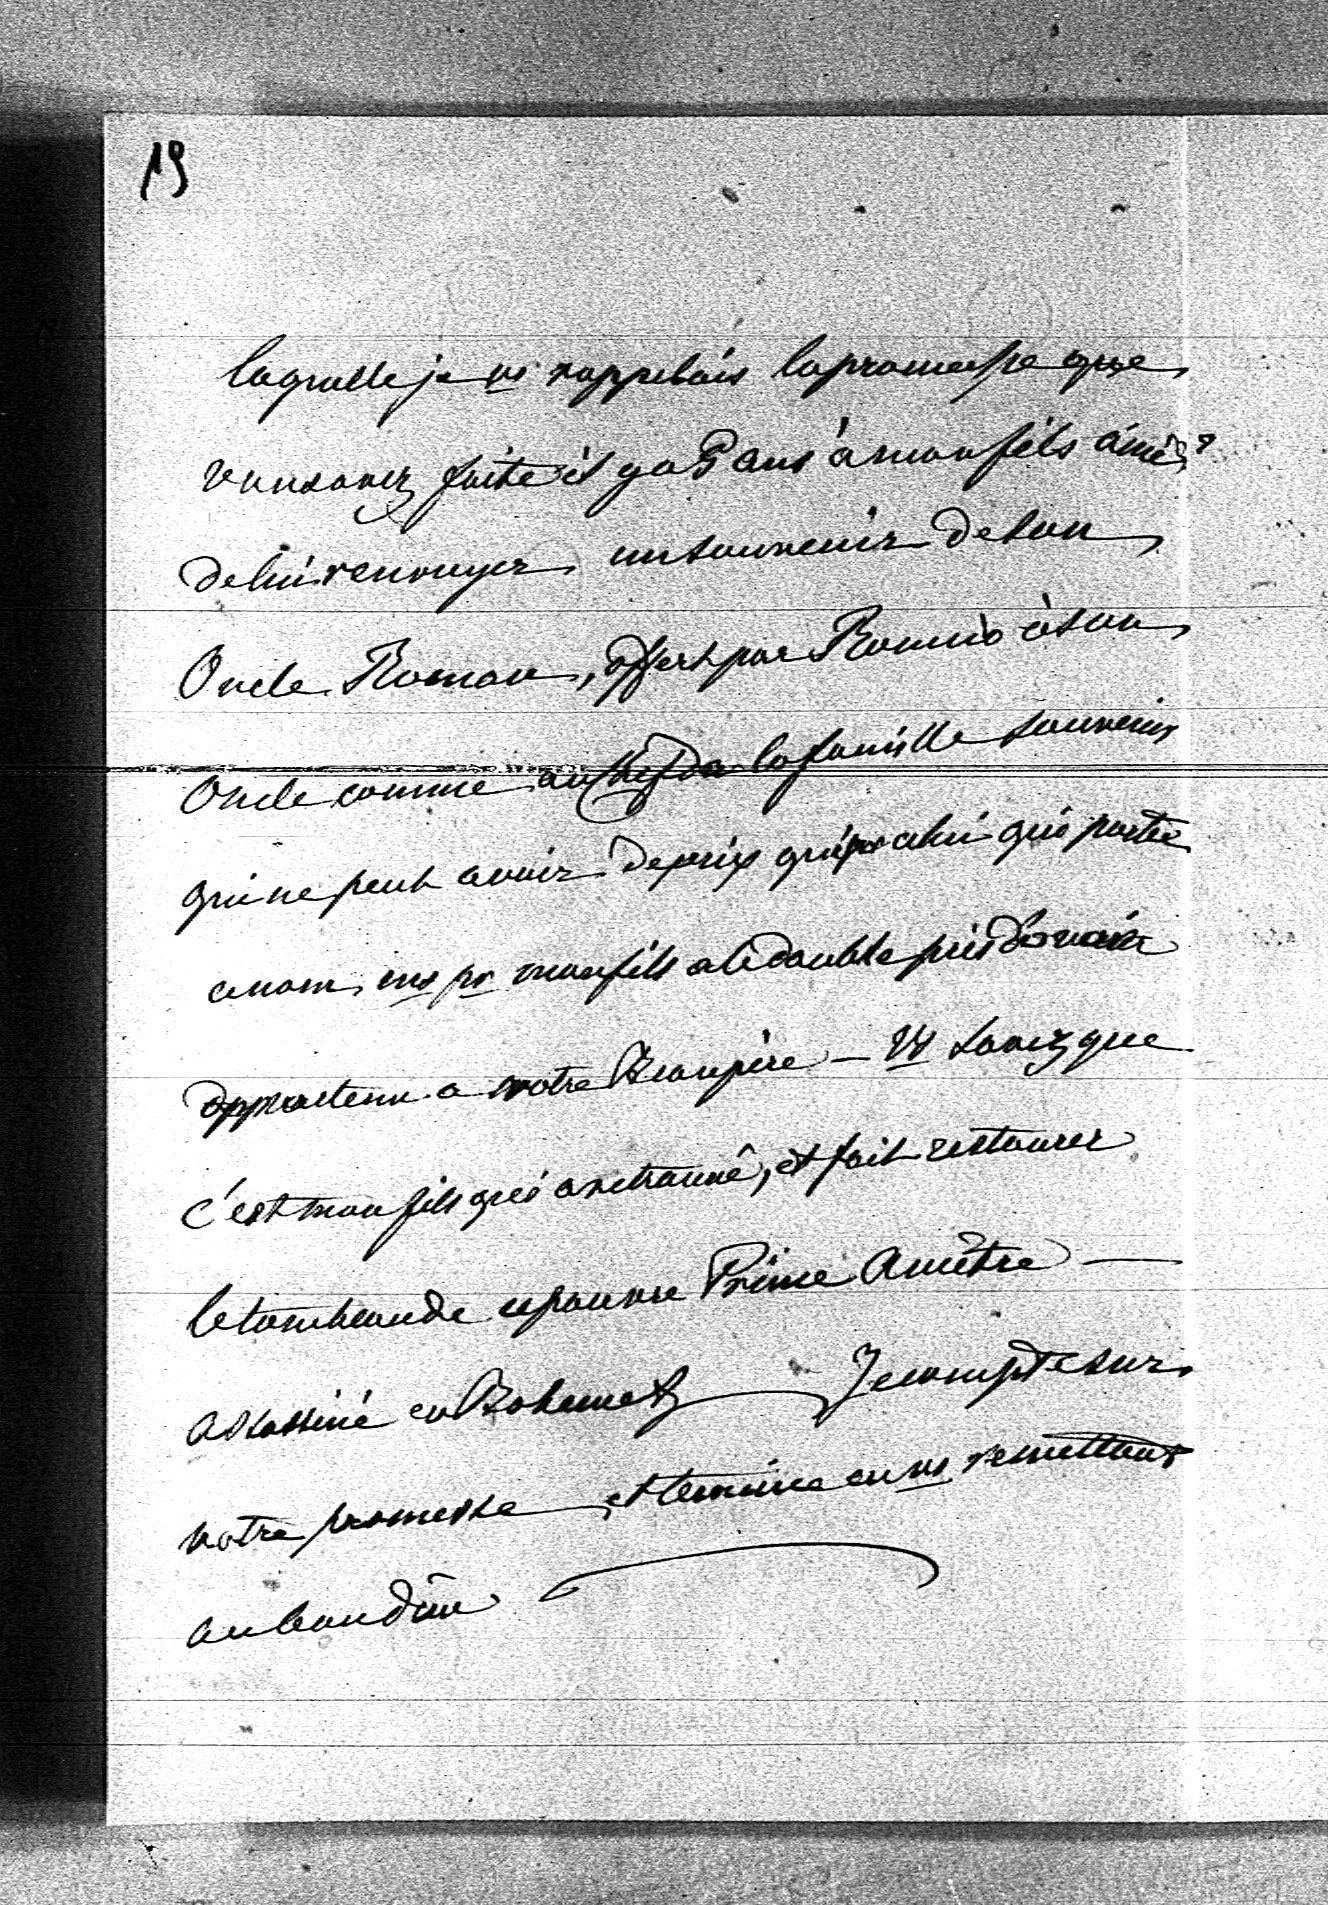 19
laquelle je vs rappelais la promesse que
vous avez faite il y a 5 ans à mon fils aîné
de lui renvoyer un souvenir de son
Oncle Roman, offert par Roumio à son
Oncle comme au chef de la famille souvenir
qui ne peut avoir de prix que pr celui qui porte
ce nom, ms pr mon fils a le double prix d'avoir
appartenu a votre Beaupère — Vs savez que
c'est mon fils qui a retrouvé, et fait restaurer
le tombeau de ce pauvre Prince Ancêtre —
assassiné en Je compte sur
votre promesse et termine en vs remettant
au bon